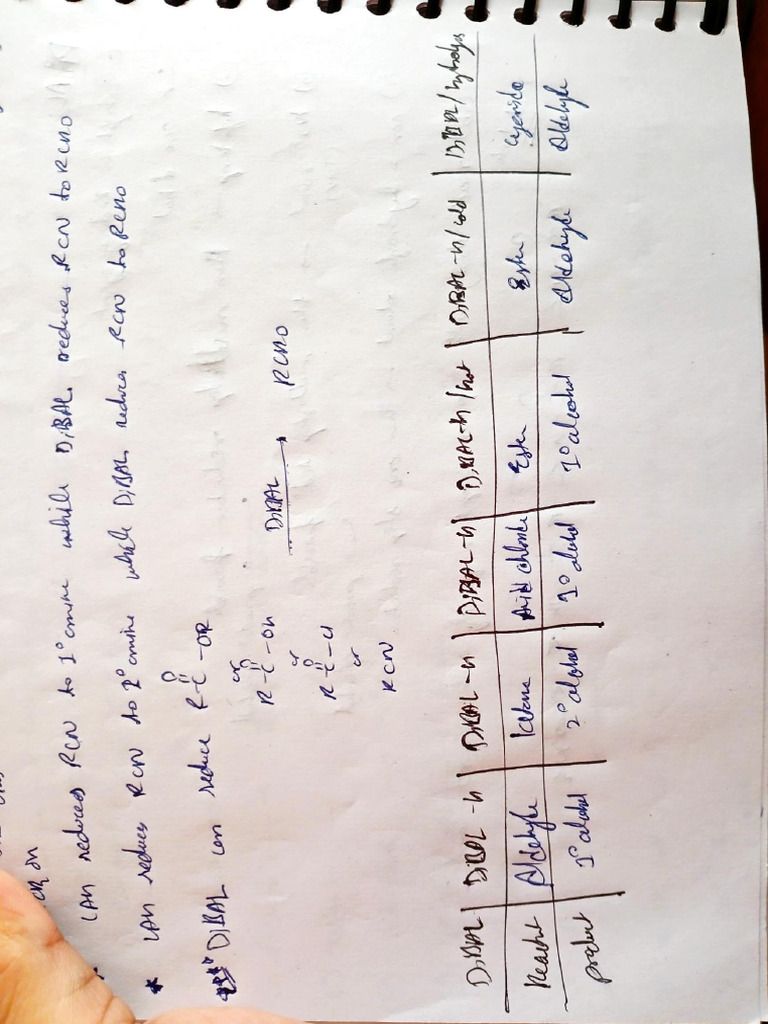 on
LAH reduces RCN to 1° amine while DiBAL reduces RCN to RCHO
* LAH reduces RCN to 1° amine while DiBAL reduces RCN to RCHO
DiBAL can reduce R-C-OR
O
or
R-C-OH
O
DiBAL
RCHO
or
R-C-Cl
O
or
RCN
DiBAL | DiBAL-H | DiBAL-H | DiBAL-H | DiBAL-H/hot | DiBAL-H/cold | DiBAL/hydrolysis
Reactnt | Aldehyde | Ketone | Acid chloride | Ester | Ester | Cyanide
product | 1° alcohol | 2° alcohol | 1° alcohol | 1° alcohol | Aldehyde | Aldehyde